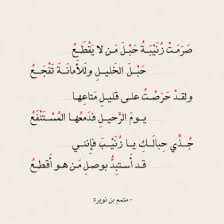 صَرَمَتْ زُنَيْبَةُ حَبْلَ مَن لا يَقْطَعُ
حَبْلَ الخَليلِ وَلَلأَمانَةُ تَفْجَعُ
ولقد حَرَصْتُ على قليلِ مَتاعِها
يومَ الرَّحيلِ فَدَمعُها المُسْتَنْفَعُ
جُذِّي حِبالَكِ يا زُنَيْبَ فإنني
قد أَستَبِدُّ بوصلِ مَن هو أَقطَعُ
- متمم بن نويرة